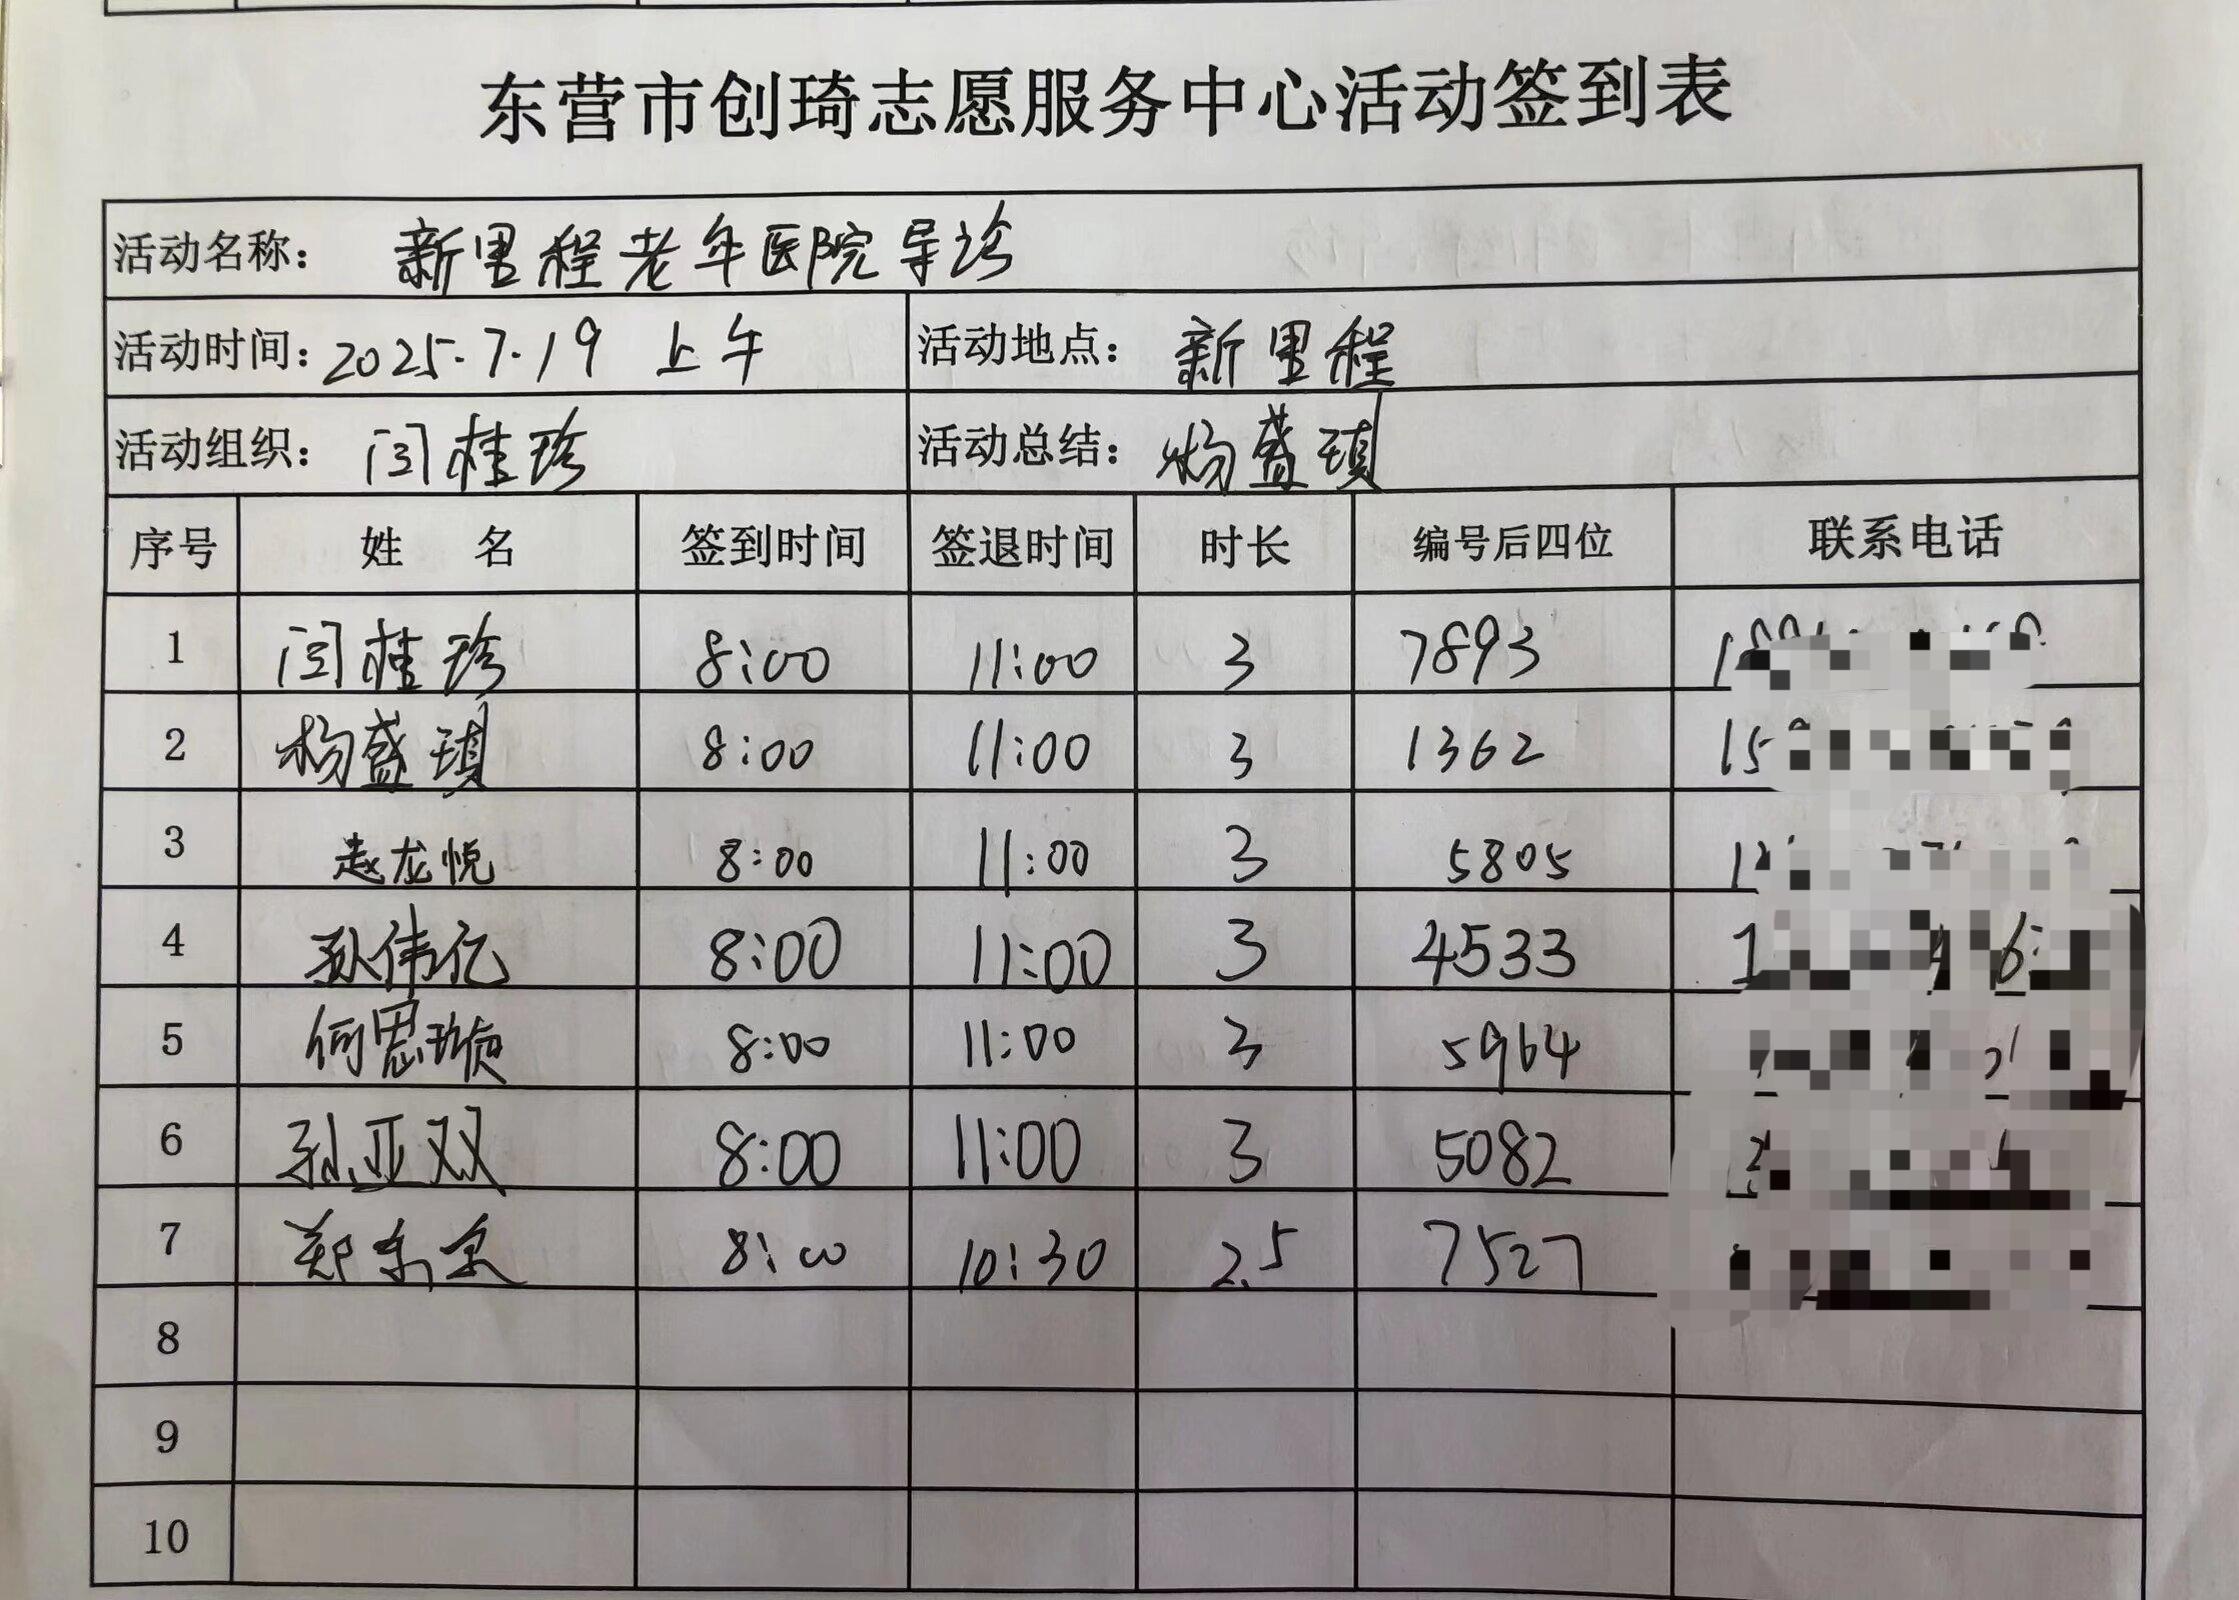 东营市创琦志愿服务中心活动签到表
活动名称： 新里程老年医院导诊
活动时间：2025.7.19 上午 活动地点： 新里程
活动组织： 闫桂珍 活动总结： 杨盛琪
序号 姓 名 签到时间 签退时间 时长 编号后四位 联系电话
1 闫桂珍 8:00 11:00 3 7893
2 杨盛琪 8:00 11:00 3 1362
3 赵龙悦 8:00 11:00 3 5805
4 孙伟亿 8:00 11:00 3 4533
5 何思璇 8:00 11:00 3 5964
6 孙亚双 8:00 11:00 3 5082
7 郑东 8:00 10:30 2.5 7527
8
9
10